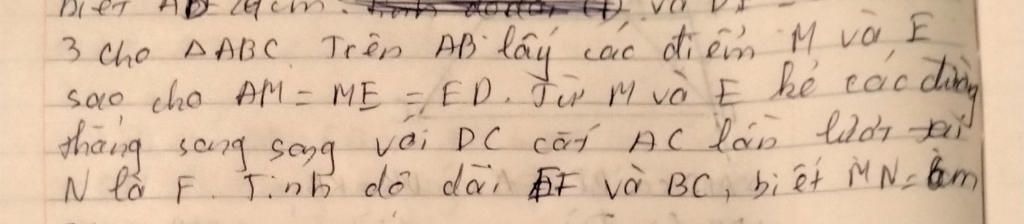 biết AB
3 cho △ABC. Trên AB lấy các điểm M và E
sao cho AM = ME = ED. Từ M và E kẻ các đường
thẳng song song với DC cắt AC lần lượt tại
N là F. Tính độ dài EF và BC, biết MN =